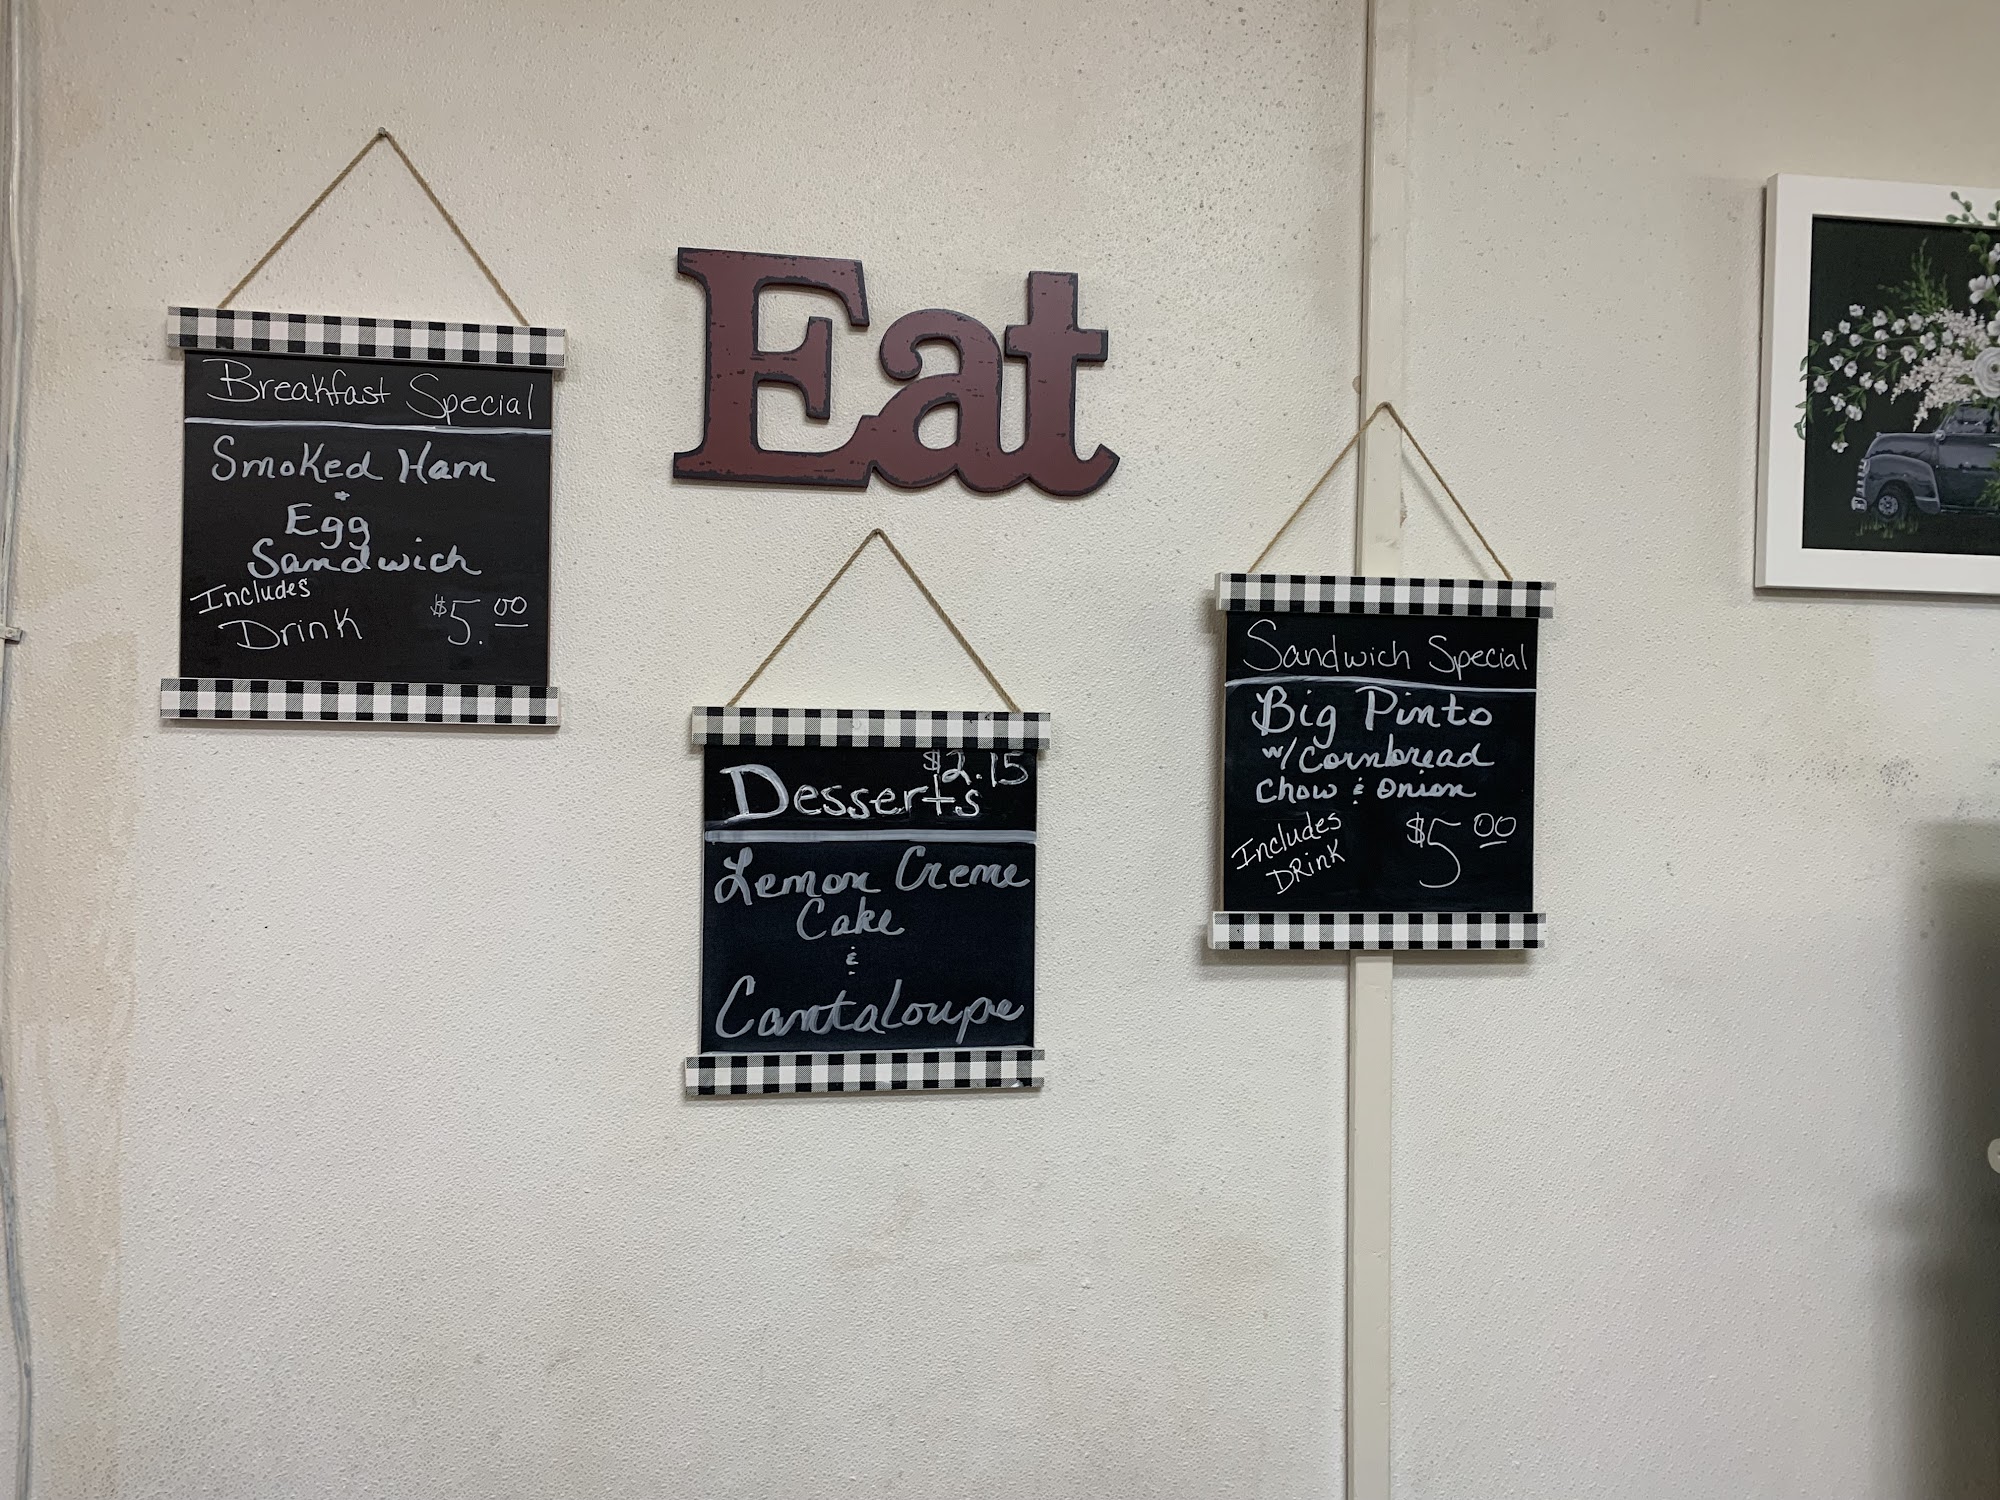 Eat
Breakfast Special
Smoked Ham
+
Egg
Sandwich
Includes
Drink $5.00
$2.15
Desserts
Lemon Creme
Cake
&
Cantaloupe
Sandwich Special
Big Pinto
w/ Cornbread
Chow & Onion
Includes
DRinK $5.00